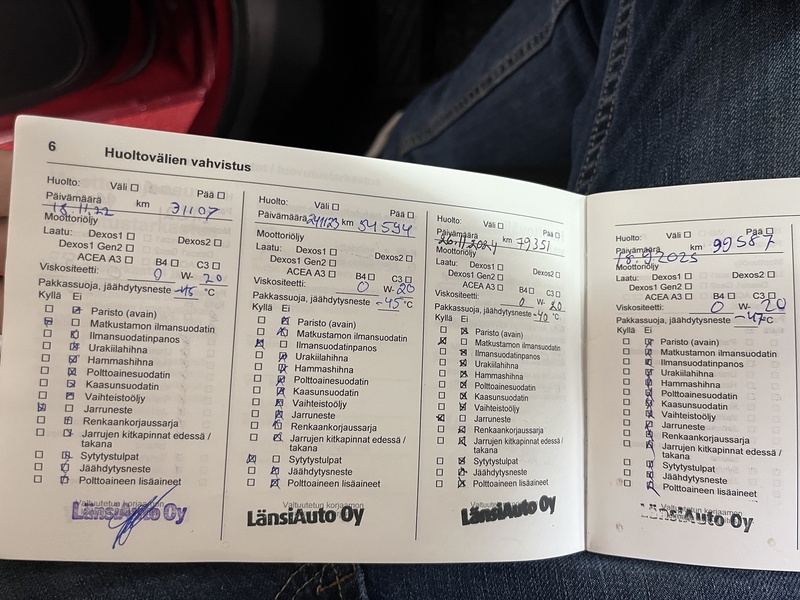 6 Huoltovälien vahvistus
Huolto: Väli Pää
Päivämäärä km 31107
18.11.22
Moottoriöljy
Laatu: Dexos1 Dexos2
Dexos1 Gen2
ACEA A3 B4 C3
Viskositeetti: 0 W- 20
Pakkassuoja, jäähdytysneste -45 °C
Kyllä Ei
Paristo (avain)
Matkustamon ilmansuodatin
Ilmansuodatinpanos
Urakiilahihna
Hammashihna
Polttoainesuodatin
Kaasunsuodatin
Vaihteistoöljy
Jarruneste
Renkaankorjaussarja
Jarrujen kitkapinnat edessä /
takana
Sytytystulpat
Jäähdytysneste
Polttoaineen lisäaineet
Valtuutetun korjaamon
LänsiAuto Oy
Huolto: Väli Pää
Päivämäärä 241123 km 54594
Moottoriöljy
Laatu: Dexos1 Dexos2
Dexos1 Gen2
ACEA A3 B4 C3
Viskositeetti: 0 W- 20
Pakkassuoja, jäähdytysneste -45 °C
Kyllä Ei
Paristo (avain)
Matkustamon ilmansuodatin
Ilmansuodatinpanos
Urakiilahihna
Hammashihna
Polttoainesuodatin
Kaasunsuodatin
Vaihteistoöljy
Jarruneste
Renkaankorjaussarja
Jarrujen kitkapinnat edessä /
takana
Sytytystulpat
Jäähdytysneste
Polttoaineen lisäaineet
Valtuutetun korjaamon
LänsiAuto Oy
Huolto: Väli Pää
Päivämäärä km 79351
26.11.2024
Moottoriöljy
Laatu: Dexos1 Dexos2
Dexos1 Gen2
ACEA A3 B4 C3
Viskositeetti: 0 W- 20
Pakkassuoja, jäähdytysneste -40 °C
Kyllä Ei
Paristo (avain)
Matkustamon ilmansuodatin
Ilmansuodatinpanos
Urakiilahihna
Hammashihna
Polttoainesuodatin
Kaasunsuodatin
Vaihteistoöljy
Jarruneste
Renkaankorjaussarja
Jarrujen kitkapinnat edessä /
takana
Sytytystulpat
Jäähdytysneste
Polttoaineen lisäaineet
Valtuutetun korjaamon
LänsiAuto Oy
Huolto: Väli Pää
Päivämäärä km 99587
18.9.2025
Moottoriöljy
Laatu: Dexos1 Dexos2
Dexos1 Gen2
ACEA A3 B4 C3
Viskositeetti: 0 W- 20
Pakkassuoja, jäähdytysneste -47 °C
Kyllä Ei
Paristo (avain)
Matkustamon ilmansuodatin
Ilmansuodatinpanos
Urakiilahihna
Hammashihna
Polttoainesuodatin
Kaasunsuodatin
Vaihteistoöljy
Jarruneste
Renkaankorjaussarja
Jarrujen kitkapinnat edessä /
takana
Sytytystulpat
Jäähdytysneste
Polttoaineen lisäaineet
Valtuutetun korjaamon
LänsiAuto Oy